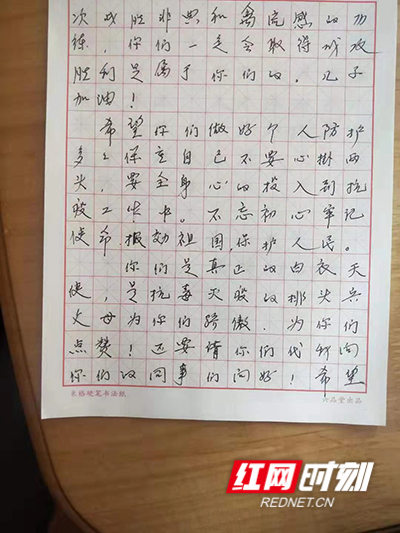 次战胜非典和禽流感的功
练，你们一定会取得成
胜利是属于你们的。儿子
加油！
希望你们做好个人防护
多多保重自己不要心掛两
头，要全身心的投入到抗
疫工作中。不忘初心牢记
使命报効祖国保护人民。
你们是真正的白衣天
使，是抗毒灭疫的排头兵
父母为你们骄傲，为你们
点赞！还要请你们代转向
你们的同事们问好！希望
米格硬笔书法纸
六品堂出品
红网时刻
REDNET.CN